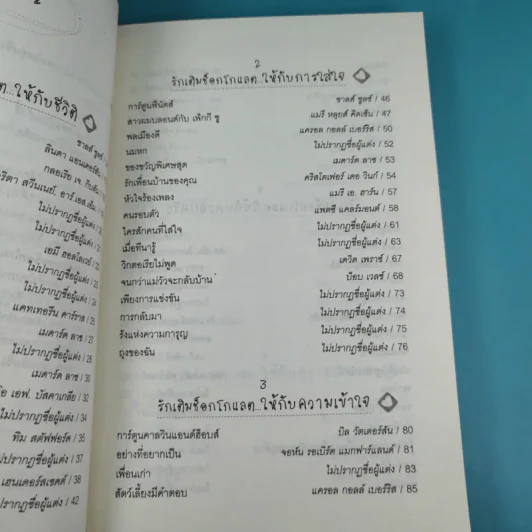 ให้กับชีวิต
ชาลส์ ชูลซ์
ลินดา
กลอเรีย เจ.
สวีนเนย์, อาร์.เอส.เอ็ม.
ไม่ปรากฏชื่อผู้แต่ง
ไม่ปรากฏชื่อผู้แต่ง
ไม่ปรากฏชื่อผู้แต่ง
เอมี
ไม่ปรากฏชื่อผู้แต่ง
แคทเทอรีน คาร์ราส / 25
เมดาร์ด ลาซ
ไม่ปรากฏชื่อผู้แต่ง / 28
เมดาร์ด ลาซ / 30
เอฟ. บัสคาเกลีย / 32
ไม่ปรากฏชื่อผู้แต่ง / 34
ทิม สตัฟฟอร์ด / 35
ไม่ปรากฏชื่อผู้แต่ง / 37
/ 38
ไม่ปรากฏชื่อผู้แต่ง / 42
2
รักเติมช็อกโกแลต...ให้กับการใส่ใจ
การ์ตูนพีนัตส์ ชาลส์ ชูลซ์ / 46
สาวผมบลอนด์กับ เพ็กกี ซู แมรี หลุยส์ คิตเซ็น / 47
พลเมืองดี แครอล กอลล์ เบอร์ริส / 50
นมหก ไม่ปรากฏชื่อผู้แต่ง / 52
ของขวัญพิเศษสุด เมดาร์ด ลาซ / 53
รักเพื่อนบ้านของคุณ คริสโตเฟอร์ เดอ วินก์ / 54
หัวใจร้องเพลง แมรี เอ. ฮาร์น / 57
คนรอบตัว แพตซี แคลร์มอนต์ / 58
ใครสักคนที่ใส่ใจ ไม่ปรากฏชื่อผู้แต่ง / 61
เมื่อทีนารู้ ไม่ปรากฏชื่อผู้แต่ง / 63
วิกตอเรียไม่พูด เดวิด เพราซ์ / 63
จนกว่าแม่วัวจะกลับบ้าน บ๊อบ เวลซ์ / 68
เพียงการแข่งขัน ไม่ปรากฏชื่อผู้แต่ง / 73
การกลับมา ไม่ปรากฏชื่อผู้แต่ง / 74
รังแห่งความการุญ ไม่ปรากฏชื่อผู้แต่ง / 75
ถุงของฉัน ไม่ปรากฏชื่อผู้แต่ง / 76
3
รักเติมช็อกโกแลต...ให้กับความเข้าใจ
การ์ตูนคาลวินแอนด์ฮ็อบส์ บิล วัตเตอร์สัน / 80
อย่างที่อยากเป็น จอห์น รอเบิร์ต แมกฟาร์แลนด์ / 81
เพื่อนเก่า ไม่ปรากฏชื่อผู้แต่ง / 83
สัตว์เลี้ยงมีคำตอบ แครอล กอลล์ เบอร์ริส / 85